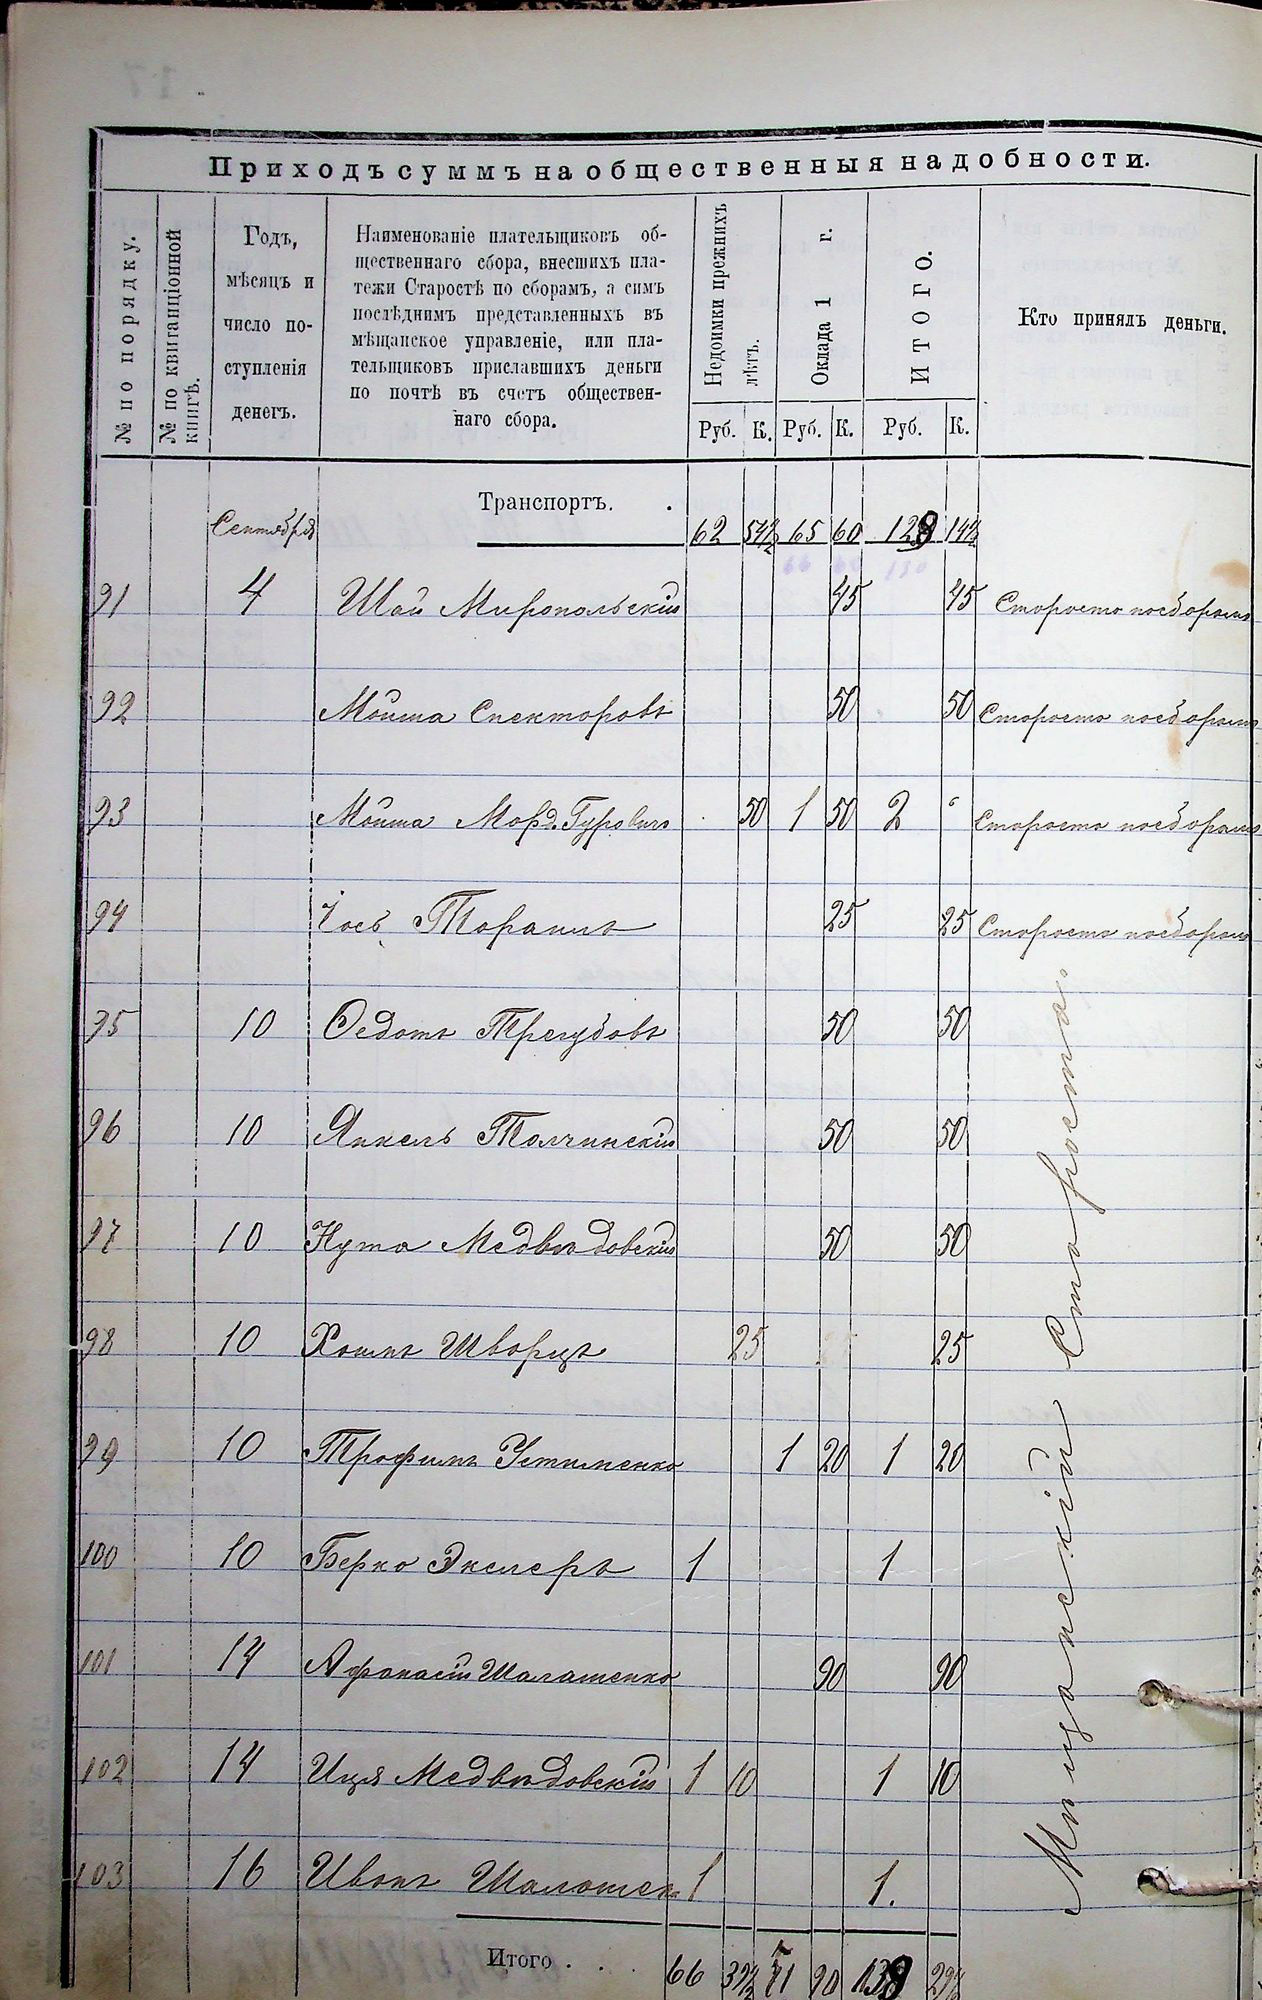 Приходъ суммъ на общественныя надобности.
№ по порядку.
№ по квитанціонной
книгѣ.
Годъ,
мѣсяцъ и
число по-
ступленія
денегъ.
Наименованіе плательщиковъ об-
щественнаго сбора, внесшихъ пла-
тежи Старостѣ по сборамъ, а симъ
послѣднимъ представленныхъ въ
мѣщанское управленіе, или пла-
тельщиковъ приславшихъ деньги
по почтѣ въ счетъ обществен-
наго сбора.
Недоимки прежнихъ
лѣтъ.
Оклада 1 г.
Итого.
Кто принялъ деньги.
Руб. К. Руб. К. Руб. К.
Транспортъ. .
Сентября 62 54½ 65 60 128 14½
66 60 130
91 4 Шая Миропольскій 45 45 Староста по сборамъ
92 Мойша Спекторовъ 50 50 Староста по сборамъ
93 Мойша Морд. Гуровичъ 50 1 50 2 " Староста по сборамъ
94 Іось 25 25 Староста по сборамъ
95 10 Ѳедотъ Трегубовъ 50 50
96 10 Янкель Толчинскій 50 50
97 10 Нута Медвѣдовскій 50 50
98 10 Хаимъ Шворцъ 25 25
99 10 Трофимъ Устименко 1 20 1 20
100 10 Берко Экслеръ 1 1
101 14 Афонасій Шалашенко 90 90
102 14 Иця Медвѣдовскій 1 10 1 10
103 16 Иванъ 1 1.
Мѣщанскій Староста
Итого . . . 66 39½ 71 90 138 29½